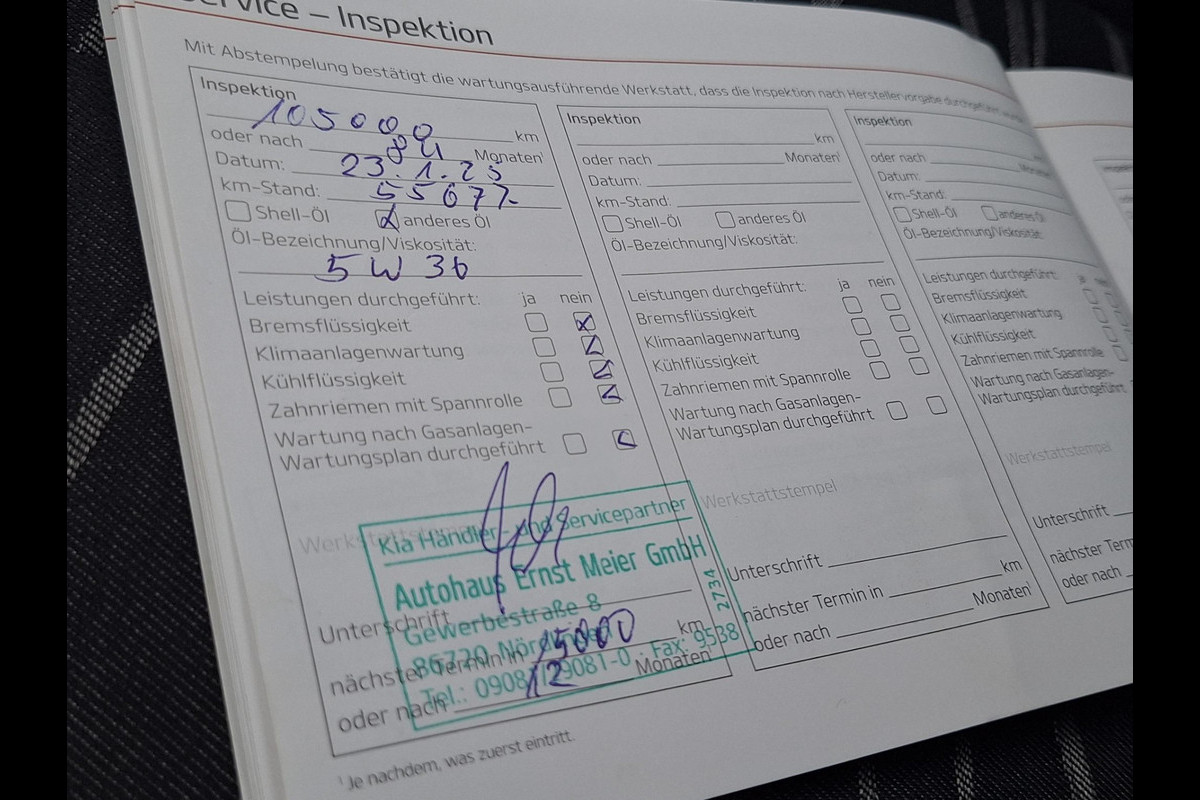 Service – Inspektion
Mit Abstempelung bestätigt die wartungsausführende Werkstatt, dass die Inspektion nach Herstellervorgabe durchgeführt
Inspektion
105000 km
oder nach 84 Monaten¹
Datum: 23.1.25
km-Stand: 55677
Shell-Öl anderes Öl
Öl-Bezeichnung/Viskosität:
5W30
Leistungen durchgeführt: ja nein
Bremsflüssigkeit
Klimaanlagenwartung
Kühlflüssigkeit
Zahnriemen mit Spannrolle
Wartung nach Gasanlagen-
Wartungsplan durchgeführt
Werkstattstempel
Kia Händler- und Servicepartner
Autohaus Ernst Meier GmbH
Gewerbestraße 8
86720 Nördlingen
Tel.: 09081/29081-0 · Fax: 9538
2734
Unterschrift
nächster Termin in 15000 km
oder nach 12 Monaten¹
Inspektion
km
oder nach Monaten¹
Datum:
km-Stand:
Shell-Öl anderes Öl
Öl-Bezeichnung/Viskosität:
Leistungen durchgeführt: ja nein
Bremsflüssigkeit
Klimaanlagenwartung
Kühlflüssigkeit
Zahnriemen mit Spannrolle
Wartung nach Gasanlagen-
Wartungsplan durchgeführt
Werkstattstempel
Unterschrift
nächster Termin in km
oder nach Monaten¹
Inspektion
oder nach
Datum:
km-Stand:
Shell-Öl anderes Öl
Öl-Bezeichnung/Viskosität:
Leistungen durchgeführt:
Bremsflüssigkeit
Klimaanlagenwartung
Kühlflüssigkeit
Zahnriemen mit Spannrolle
Wartung nach Gasanlagen-
Wartungsplan durchgeführt
Werkstattstempel
Unterschrift
nächster
oder nach
¹ Je nachdem, was zuerst eintritt.